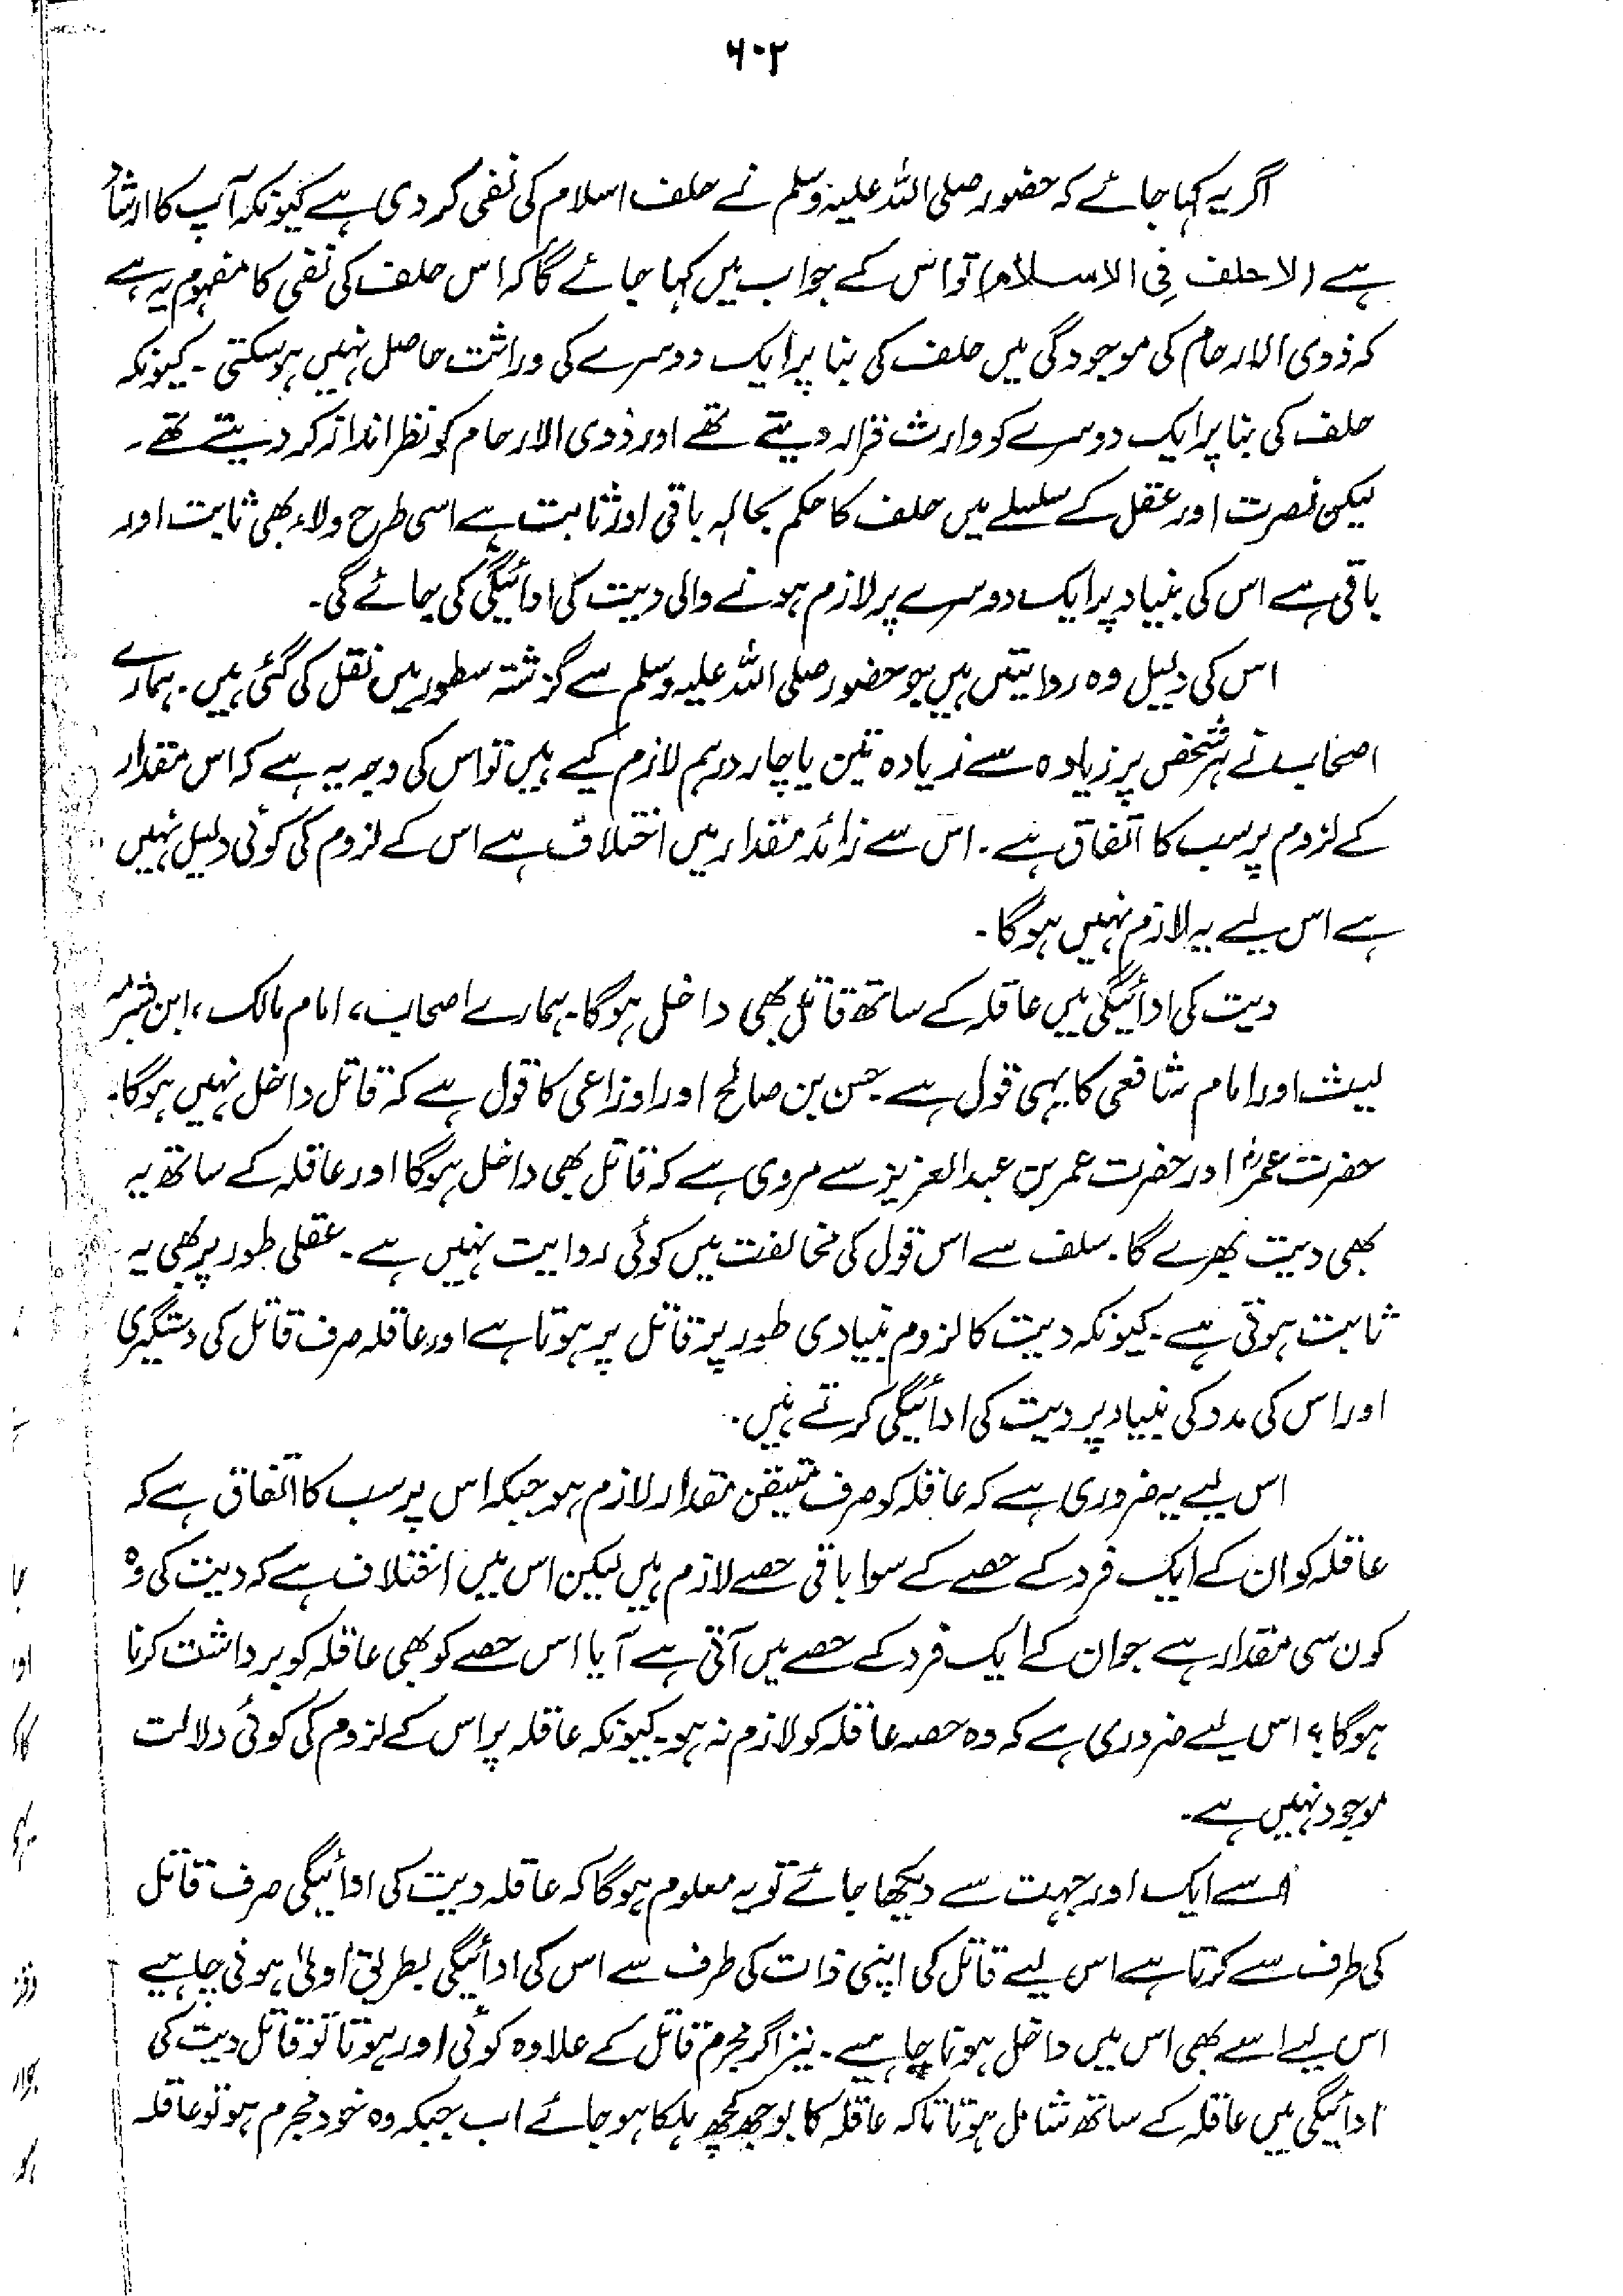 ۶۰۲
اگر یہ کہا جائے کہ حضور صلی اللہ علیہ وسلم نے حلف اسلام کی نفی کر دی ہے کیونکہ آپ کا ارشاد
ہے (لا حلف فی الاسلام) تو اس کے جواب میں کہا جائے گا کہ اس حلف کی نفی کا مفہوم یہ ہے
کہ ذوی الارحام کی موجودگی میں حلف کی بنا پر ایک دوسرے کی وراثت حاصل نہیں ہو سکتی۔ کیونکہ
حلف کی بنا پر ایک دوسرے کو وارث قرار دیتے تھے اور ذوی الارحام کو نظر انداز کر دیتے تھے۔
لیکن نصرت اور عقل کے سلسلے میں حلف کا حکم بحالہ باقی اور ثابت ہے اسی طرح ولاء بھی ثابت اور
باقی ہے اس کی بنیاد پر ایک دوسرے پر لازم ہونے والی دیت کی ادائیگی کی جائے گی۔
اس کی دلیل وہ روایتیں ہیں جو حضور صلی اللہ علیہ وسلم سے گزشتہ سطور میں نقل کی گئی ہیں۔ ہمارے
اصحاب نے ہر شخص پر زیادہ سے زیادہ تین یا چار درہم لازم کیے ہیں تو اس کی وجہ یہ ہے کہ اس مقدار
کے لزوم پر سب کا اتفاق ہے۔ اس سے زائد مقدار میں اختلاف ہے اس کے لزوم کی کوئی دلیل نہیں
ہے اس لیے یہ لازم نہیں ہوگا۔
دیت کی ادائیگی میں عاقلہ کے ساتھ قاتل بھی داخل ہوگا۔ ہمارے اصحاب، امام مالک، ابن شبرمہ
لیث اور امام شافعی کا یہی قول ہے۔ حسن بن صالح اور اوزاعی کا قول ہے کہ قاتل داخل نہیں ہوگا۔
حضرت عمرؓ اور حضرت عمر بن عبدالعزیز سے مروی ہے کہ قاتل بھی داخل ہوگا اور عاقلہ کے ساتھ یہ
بھی دیت بھرے گا۔ سلف سے اس قول کی مخالفت میں کوئی روایت نہیں ہے۔ عقلی طور پر بھی یہ
ثابت ہوتی ہے۔ کیونکہ دیت کا لزوم بنیادی طور پر قاتل پر ہوتا ہے اور عاقلہ صرف قاتل کی دستگیری
اور اس کی مدد کی بنیاد پر دیت کی ادائیگی کرتے ہیں۔
اس لیے یہ ضروری ہے کہ عاقلہ کو صرف متیقن مقدار لازم ہو جبکہ اس پر سب کا اتفاق ہے کہ
عاقلہ کو ان کے ایک فرد کے حصے کے سوا باقی حصے لازم ہیں لیکن اس میں اختلاف ہے کہ دیت کی وہ
کون سی مقدار ہے جو ان کے ایک فرد کے حصے میں آتی ہے آیا اس حصے کو بھی عاقلہ کو برداشت کرنا
ہوگا؟ اس لیے ضروری ہے کہ وہ حصہ عاقلہ کو لازم نہ ہو۔ کیونکہ عاقلہ پر اس کے لزوم کی کوئی دلالت
موجود نہیں ہے۔
اسے ایک اور جہت سے دیکھا جائے تو یہ معلوم ہوگا کہ عاقلہ دیت کی ادائیگی صرف قاتل
کی طرف سے کرتا ہے اس لیے قاتل کی اپنی ذات کی طرف سے اس کی ادائیگی بطریق اولیٰ ہونی چاہیے
اس لیے اسے بھی اس میں داخل ہونا چاہیے۔ نیز اگر مجرم قاتل کے علاوہ کوئی اور ہوتا تو قاتل دیت کی
ادائیگی میں عاقلہ کے ساتھ شامل ہوتا تاکہ عاقلہ کا بوجھ کچھ ہلکا ہو جائے اب جبکہ وہ خود مجرم ہو تو عاقلہ